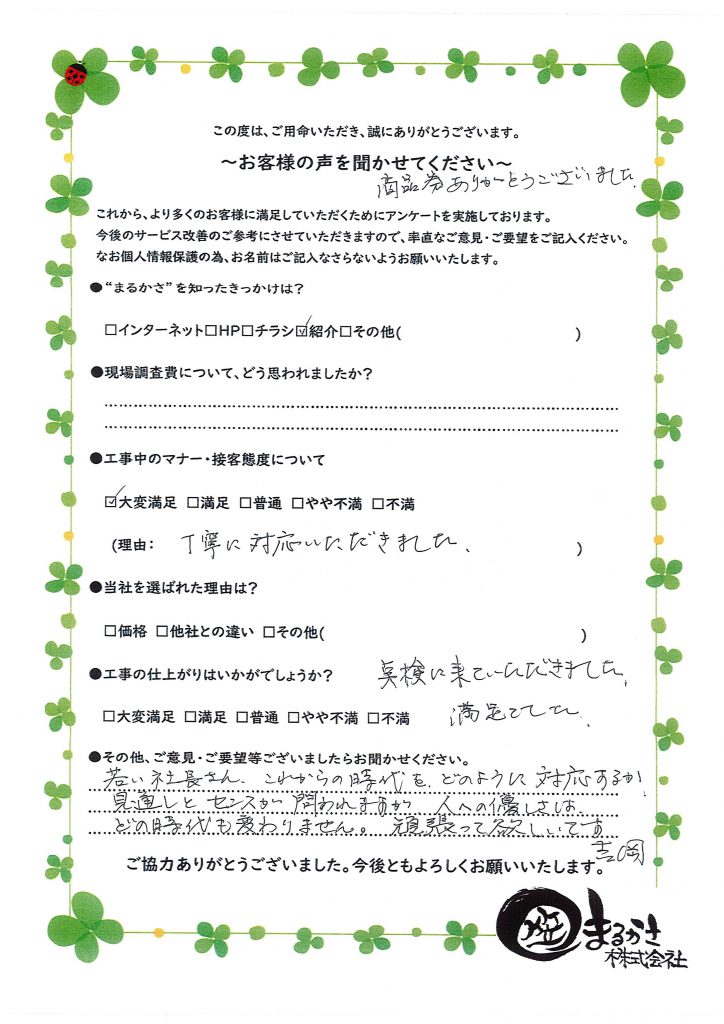 この度は、ご用命いただき、誠にありがとうございます。
～お客様の声を聞かせてください～
商品券ありがとうございました.
これから、より多くのお客様に満足していただくためにアンケートを実施しております。
今後のサービス改善のご参考にさせていただきますので、率直なご意見・ご要望をご記入ください。
なお個人情報保護の為、お名前はご記入なさらないようお願いいたします。
●“まるかさ”を知ったきっかけは？
□インターネット□HP□チラシ☑紹介□その他(　　　)
●現場調査費について、どう思われましたか？
●工事中のマナー・接客態度について
☑大変満足 □満足 □普通 □やや不満 □不満
(理由： 丁寧に対応いただきました. )
●当社を選ばれた理由は？
□価格 □他社との違い □その他(　　　)
●工事の仕上がりはいかがでしょうか？ 点検に来ていただきました.
□大変満足 □満足 □普通 □やや不満 □不満 満足でした.
●その他、ご意見・ご要望等ございましたらお聞かせください。
若い社長さん、これからの時代を、どのように対応するか、
見直しとセンスが問われますが 人への優しさは、
どの時代も変わりません。頑張って欲しいです
吉岡
ご協力ありがとうございました。今後ともよろしくお願いいたします。
まるかさ
株式会社